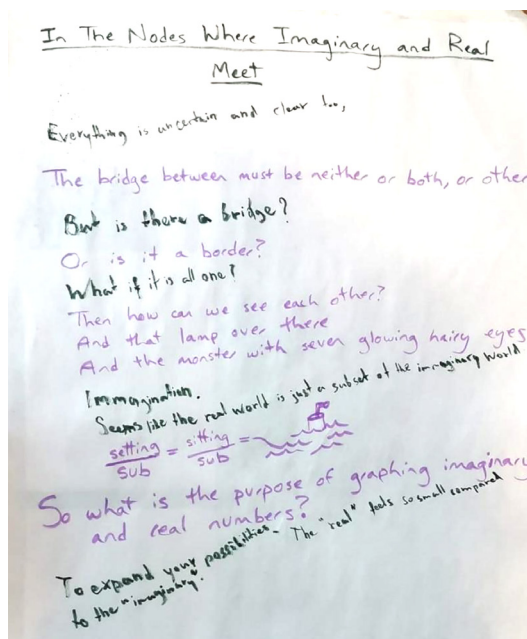 In The Nodes Where Imaginary and Real
Meet
Everything is uncertain and clear too,
The bridge between must be neither or both, or other
But is there a bridge?
Or is it a border?
What if it is all one?
Then how can we see each other?
And that lamp over there
And the monster with seven glowing hairy eyes
Immagination.
Seems like the real world is just a subset of the immaginary world
setting = sitting =
sub sub
So what is the purpose of graphing imaginary
and real numbers?
To expand your possibilities. The "real" feels so small compared
to the "imaginary".